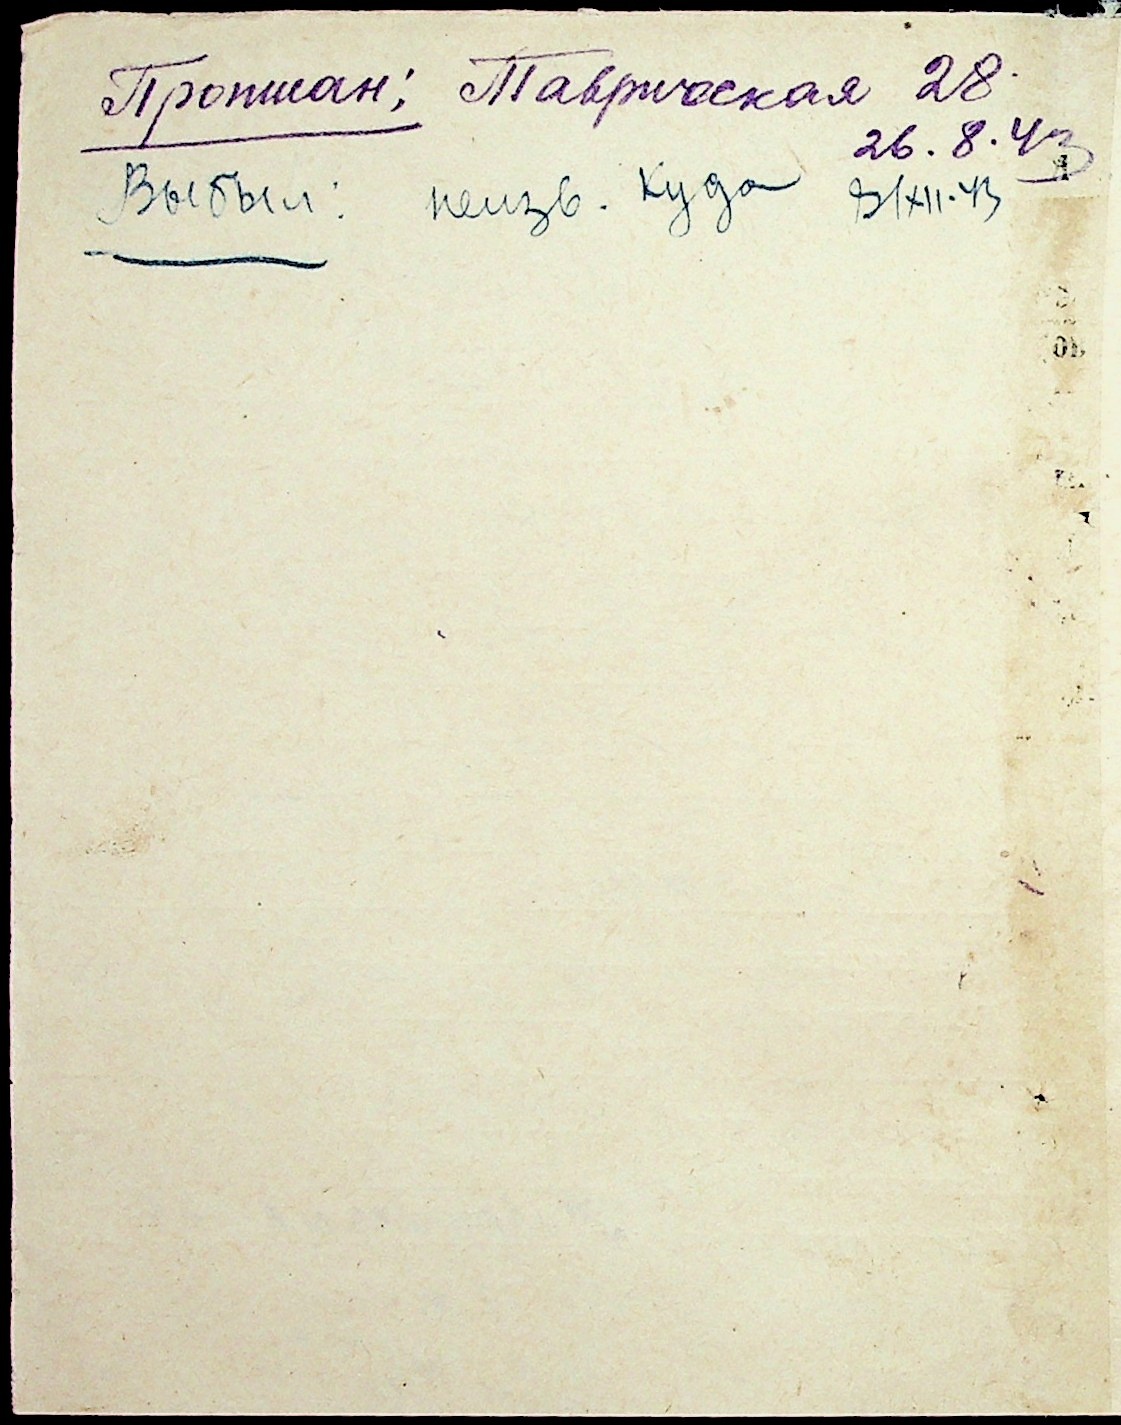 Прописан: Таврическая 28
26.8.43
Выбыл: неизв. куда 8/XII.43